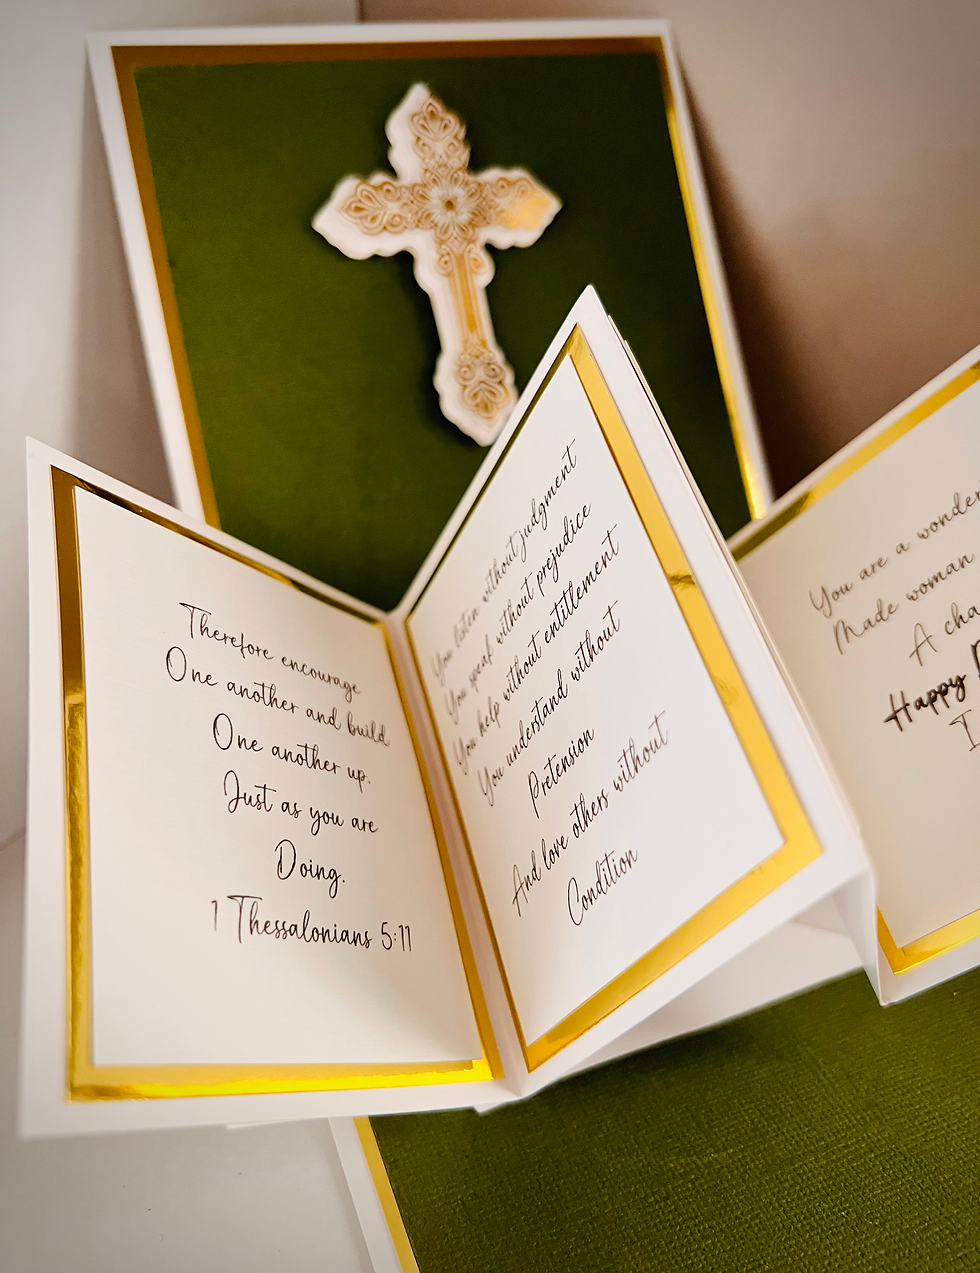 Therefore encourage
One another and build
One another up.
Just as you are
Doing.
1 Thessalonians 5:11
You listen without judgment
You speak without prejudice
You help without entitlement
You understand without
Pretension
And love others without
Condition
You are a
Made woman
A
Happy